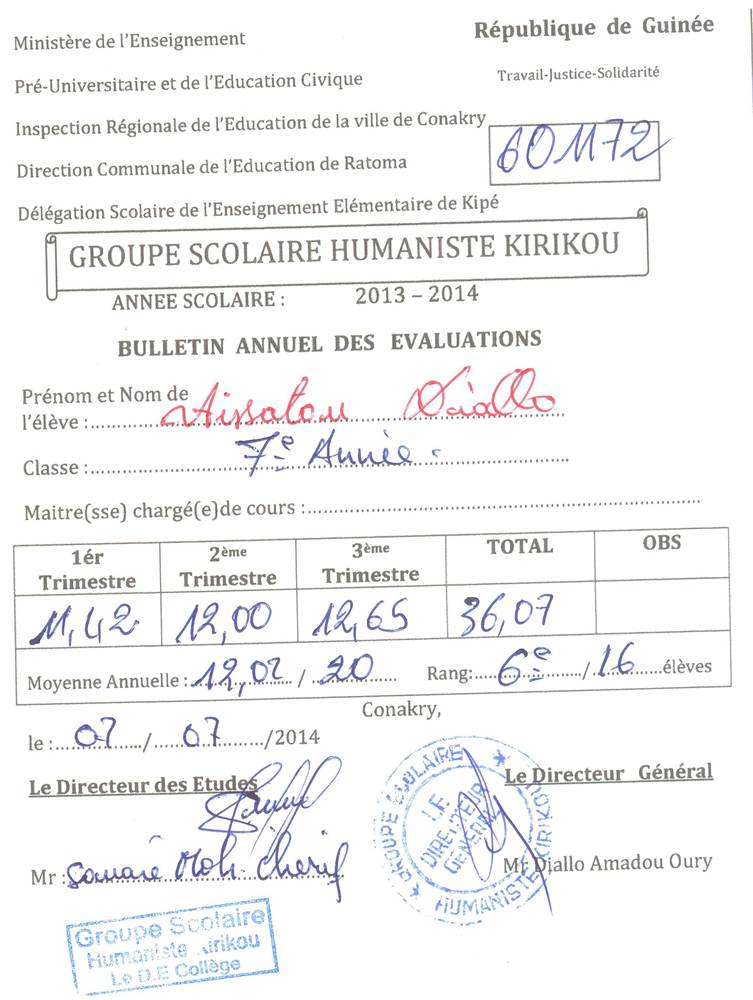 Ministère de l'Enseignement
République de Guinée
Pré-Universitaire et de l'Education Civique
Travail-Justice-Solidarité
Inspection Régionale de l'Education de la ville de Conakry
601172
Direction Communale de l'Education de Ratoma
Délégation Scolaire de l'Enseignement Elémentaire de Kipé
GROUPE SCOLAIRE HUMANISTE KIRIKOU
ANNEE SCOLAIRE : 2013 – 2014
BULLETIN ANNUEL DES EVALUATIONS
Prénom et Nom de
l'élève :.....Aissatou Diallo
Classe :.....7e Année.
Maitre(sse) chargé(e)de cours :.....
1ér Trimestre 2ème Trimestre 3ème Trimestre TOTAL OBS
11,42 12,00 12,65 36,07
Moyenne Annuelle : 12,02 / 20 Rang: 6e / 16 élèves
Conakry,
le : 07 / 07 /2014
Le Directeur des Etudes
Le Directeur Général
Mr : Soumaré Moh. Cherif
Mr Diallo Amadou Oury
GROUPE SCOLAIRE HUMANISTE KIRIKOU
LE DIRECTEUR GENERAL
Groupe Scolaire
Humaniste Kirikou
Le D.E Collège